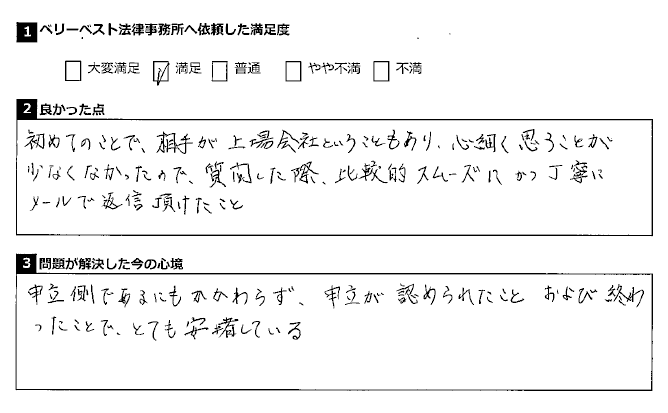 1 ベリーベスト法律事務所へ依頼した満足度
□ 大変満足 ☑ 満足 □ 普通 □ やや不満 □ 不満
2 良かった点
初めてのことで、相手が上場会社ということもあり、心細く思うことが
少なくなかったので、質問した際、比較的スムーズにかつ丁寧に
メールで返信頂けたこと
3 問題が解決した今の心境
申立側であるにもかかわらず、申立が認められたこと および終わ
ったことで、とても安堵している